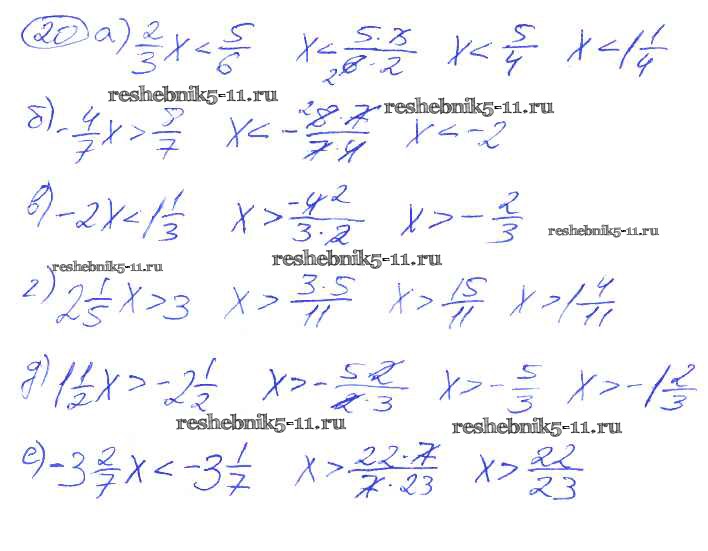 20 а) 2/3 x < 5/6 x < 5·3/6·2 x < 5/4 x < 1 1/4
reshebnik5-11.ru
reshebnik5-11.ru
б) -4/7 x > 8/7 x < -2 8·7/7·4 x < -2
в) -2x < 1 1/3 x > -4 2/3·2 x > -2/3
reshebnik5-11.ru
reshebnik5-11.ru
reshebnik5-11.ru
г) 2 1/5 x > 3 x > 3·5/11 x > 15/11 x > 1 4/11
д) 1 1/2 x > -2 1/2 x > -5·2/2·3 x > -5/3 x > -1 2/3
reshebnik5-11.ru
reshebnik5-11.ru
е) -3 2/7 x < -3 1/7 x > 22·7/7·23 x > 22/23